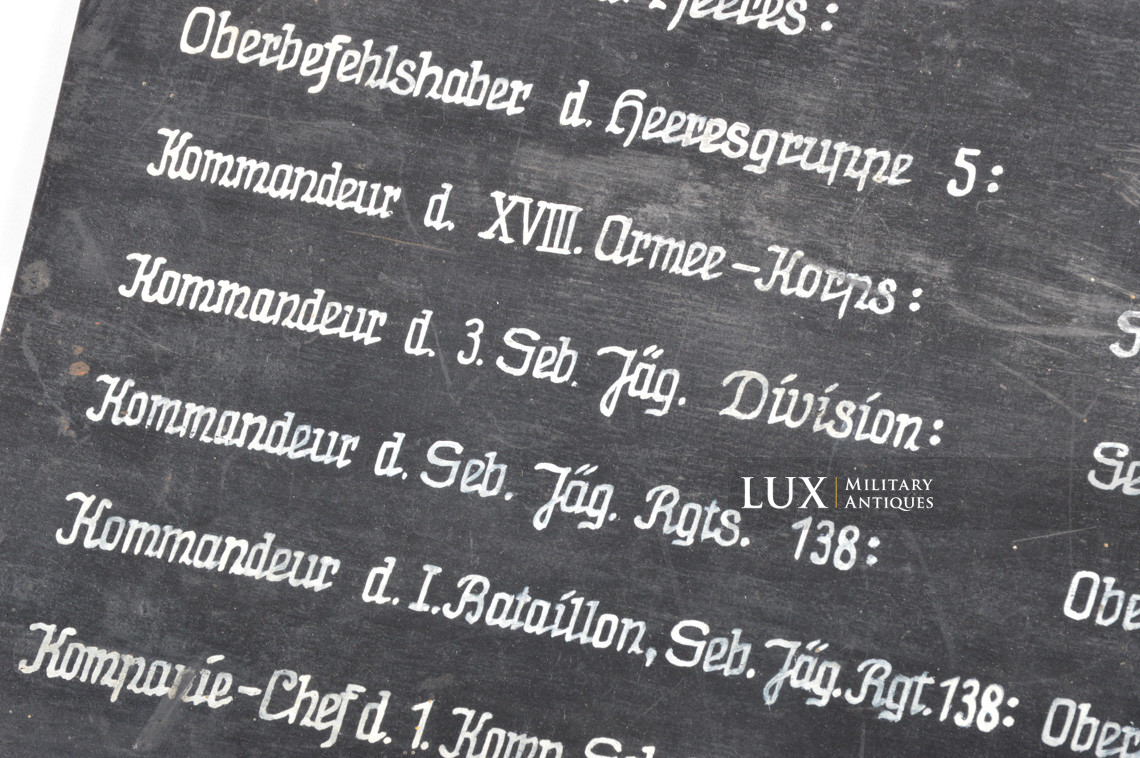 d. Heeres:
Oberbefehlshaber d. Heeresgruppe 5:
Kommandeur d. XVIII. Armee-Korps:
Kommandeur d. 3. Geb. Jäg. Division:
Kommandeur d. Geb. Jäg. Rgts. 138:
Kommandeur d. I. Bataillon, Geb. Jäg. Rgt. 138: Ober
Kompanie-Chef d. 1. Komp.
LUX MILITARY ANTIQUES